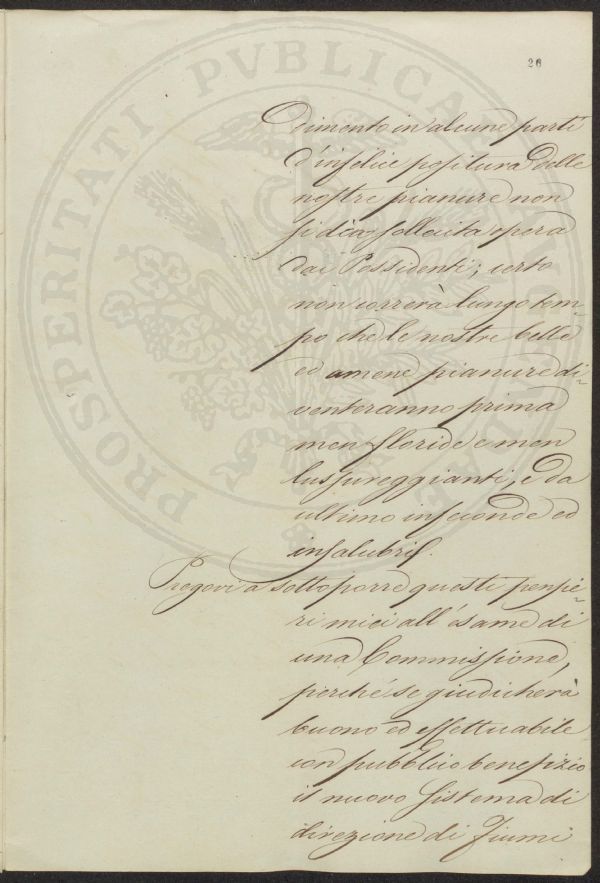 26
dimento in alcune parti
d'infelice positura delle
nostre pianure non
si dia sollecita opera
dai Possidenti; certo
non correrà lungo tem-
po che le nostre belle
ed amene pianure di-
venteranno prima
men floride e men
lussureggianti, e da
ultimo infeconde ed
insalubri.
Pregovi a sottoporre questi pensie-
ri miei all'esame di
una Commissione,
perché se giudicherà
buono ed effettuabile
con pubblico benefizio
il nuovo sistema di
direzione di Fiumi
PROSPERITATI PVBLICAE